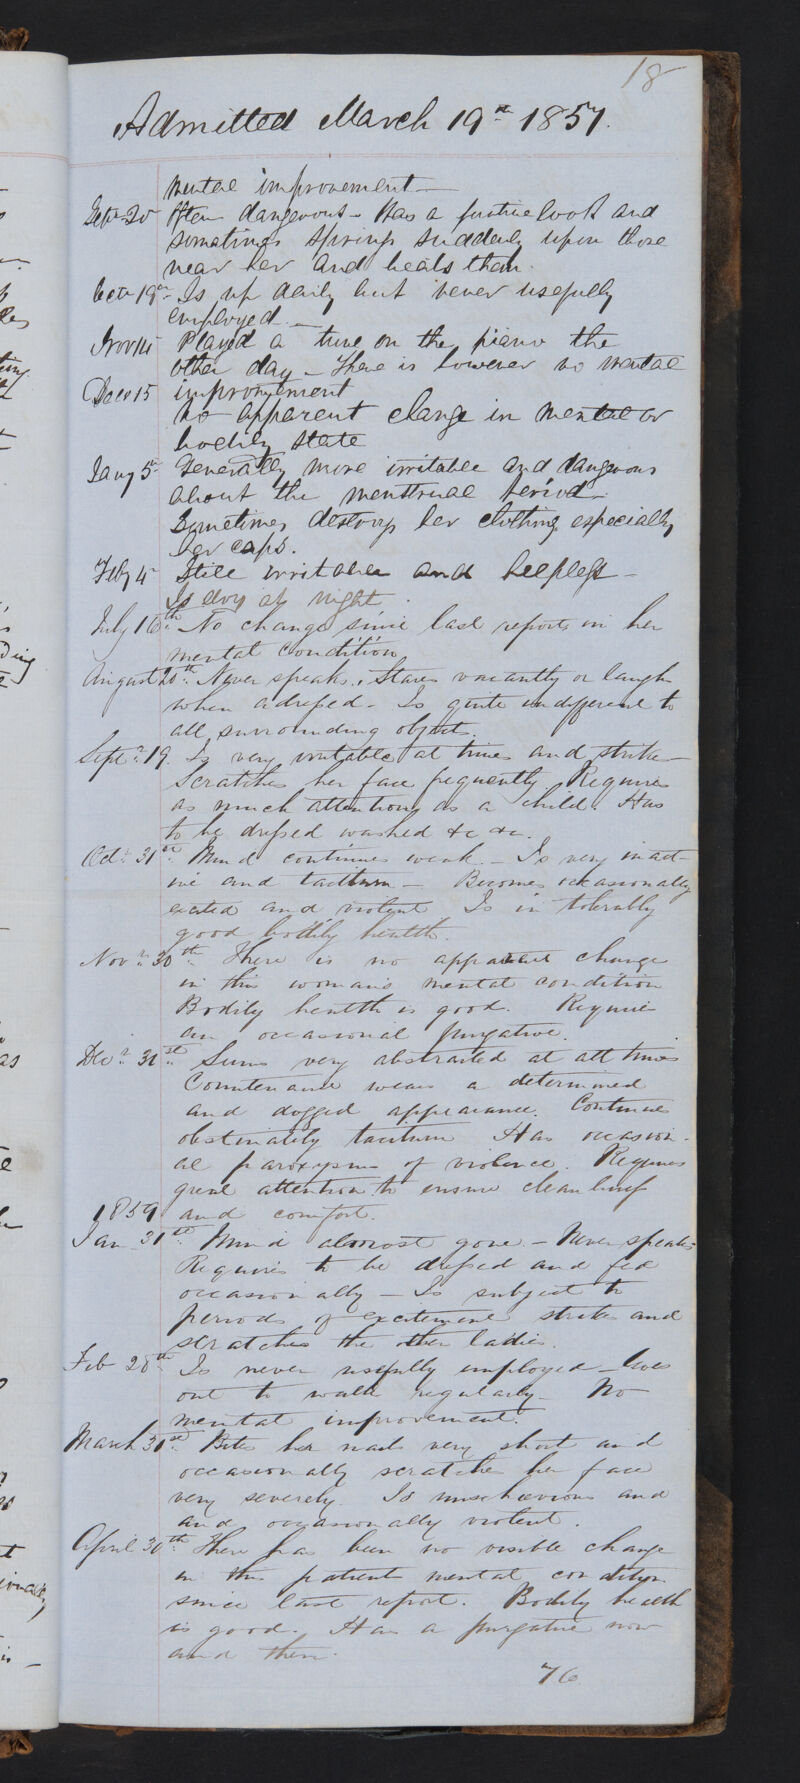 18
Admitted March 19th 1857.
mental improvement —
Septr 20 Often dangerous - Has a furtive look and
sometimes springs suddenly upon those
near her and beats them.
Octr 19th Is up daily but never usefully
employed. —
Nov 14 Played a tune on the piano the
other day - There is however no mental
improvement
Decr 15 No apparent change in mental or
bodily state
Jany 5th Generally more irritable and dangerous
about the menstrual period -
Sometimes destroys her clothing especially
her caps.
Feby 4th Still irritable and helpless -
Is dry at night
July 16th No change since last report in her
mental condition
August 20th Never speaks. Stares vacantly or laughs
when addressed - Is quite indifferent to
all surrounding objects.
Septr 19. Is very irritable at times and strikes -
Scratches her face frequently Requires
as much attention as a child. Has
to be dressed washed &c &c.
Octr 31st Mind continues weak. - Is very inact-
ive and taciturn - Becomes occasionally
excited and violent Is in tolerably
good bodily health.
Novr 30th There is no apparent change
in this womans mental condition
Bodily health is good. Requires
an occasional purgative.
Decr 31st Seems very abstracted at all times
Countenance wears a determined
and dogged appearance. Continues
obstinately taciturn Has occasion-
al paroxysms of violence. Requires
great attention to ensure cleanliness
1859 and comfort.
Jan 31st Mind almost gone. - Never speaks
Requires to be dressed and fed
occasionally - Is subject to
periods of excitement strikes and
scratches the other ladies.
Feb 28th Is never usefully employed - Goes
out to walk regularly - No
mental improvement.
March 31st Bites her nails very short and
occasionally scratches her face
very severely. Is mischievous and
and occasionally violent.
April 30th There has been no visible change
in this patients mental condition
since last report. Bodily health
is good. Has a purgative now
and then.
76